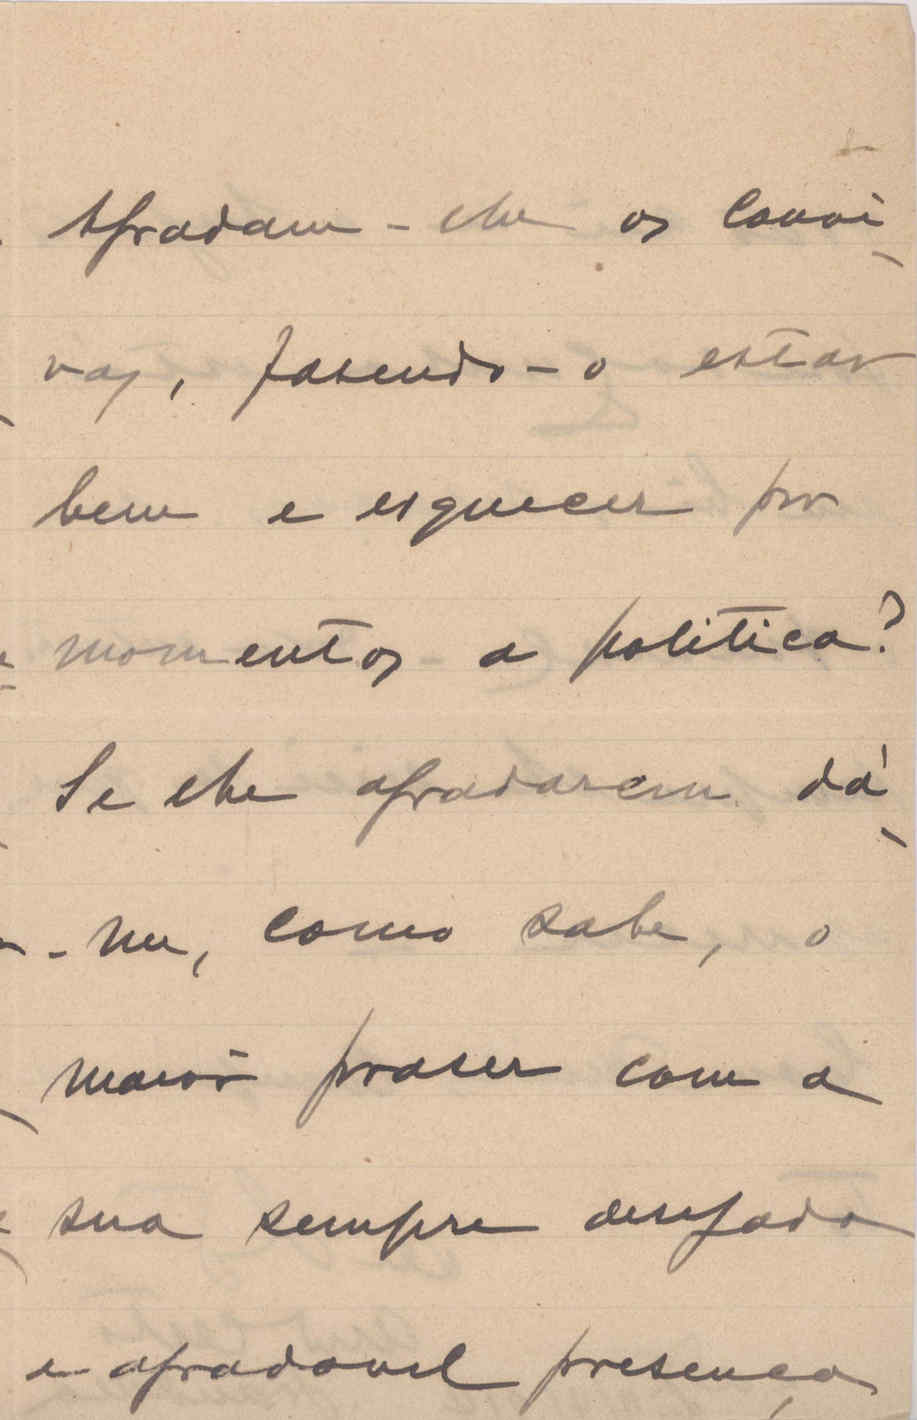 Agradam-lhe os convi-
vas, fasendo-o estar
bem e esquecer por
momentos a politica?
Se lhe agradarem dá-
-me, como sabe, o
maior praser com a
sua sempre desejada
e agradavel presença